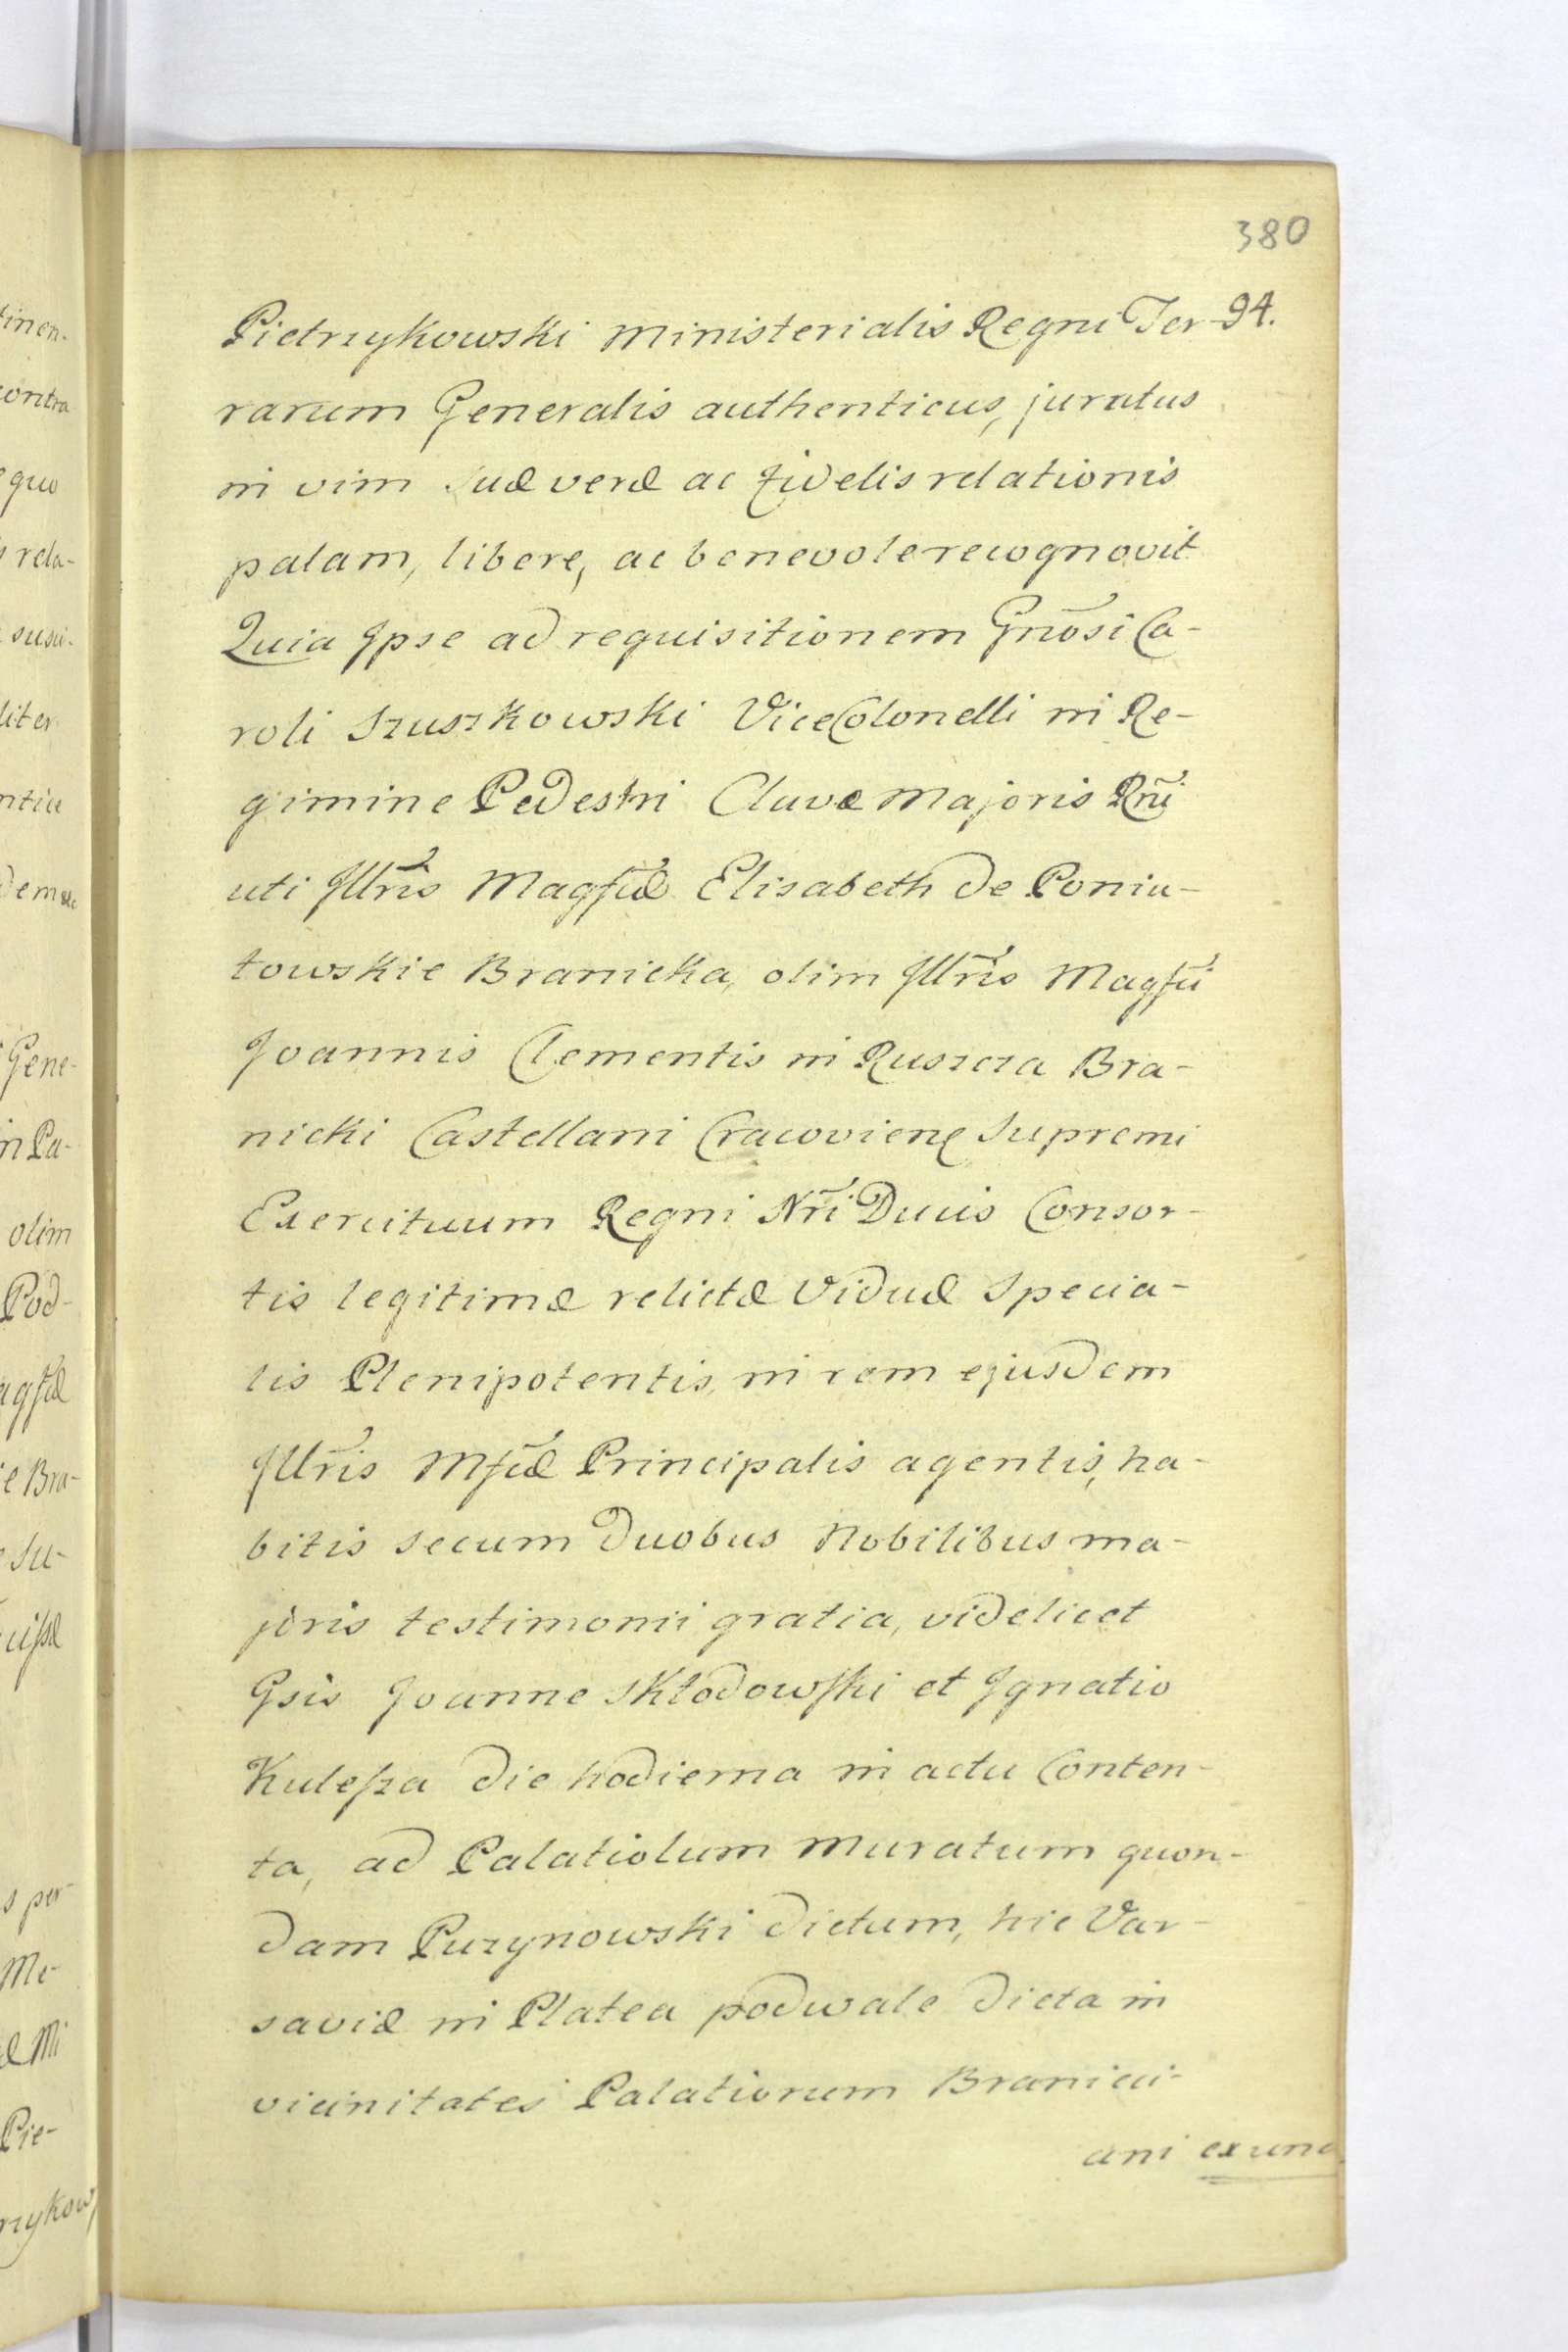 380
94.
Pietrzykowski Ministerialis Regni Ter-
rarum Generalis authenticus, juratus
in vim suæ veræ ac fidelis relationis
palam, libere, ac benevole recognovit
Quia Ipse ad requisitionem Gñosi Ca-
roli Szuszkowski ViceColonelli in Re-
gimine Pedestri Clavæ Majoris Rñi
uti Illr̃is Magfcæ Elisabeth de Ponia-
towskie Branicka, olim Illr̃is Magfci
Joannis Clementis in Ruszcza Bra-
nicki Castellani Cracovien Supremi
Exercituum Regni Nr̃i Ducis Consor-
tis legitimæ relictæ Viduæ Specia-
lis Plenipotentis, in rem ejusdem
Illr̃is Mfcæ Principalis agentis, ha-
bitis secum Duobus Nobilibus ma-
joris testimonii gratia, videlicet
Gsis Joanne Skłodowski et Ignatio
Kulesza die hodierna in actu Conten-
ta, ad Palatiolum Muratum quon-
dam Puzynowski dictum, hic Var-
saviæ in Platea podwale dicta in
vicinitatei Palatiorum Branici-
ani ex una
inen-
contra
equo
rela-
liter
Gene-
in Pa-
olim
Pod-
agfcæ
e Bra-
Su-
s per-
Me-
æ Mi
Pie-
rzykow